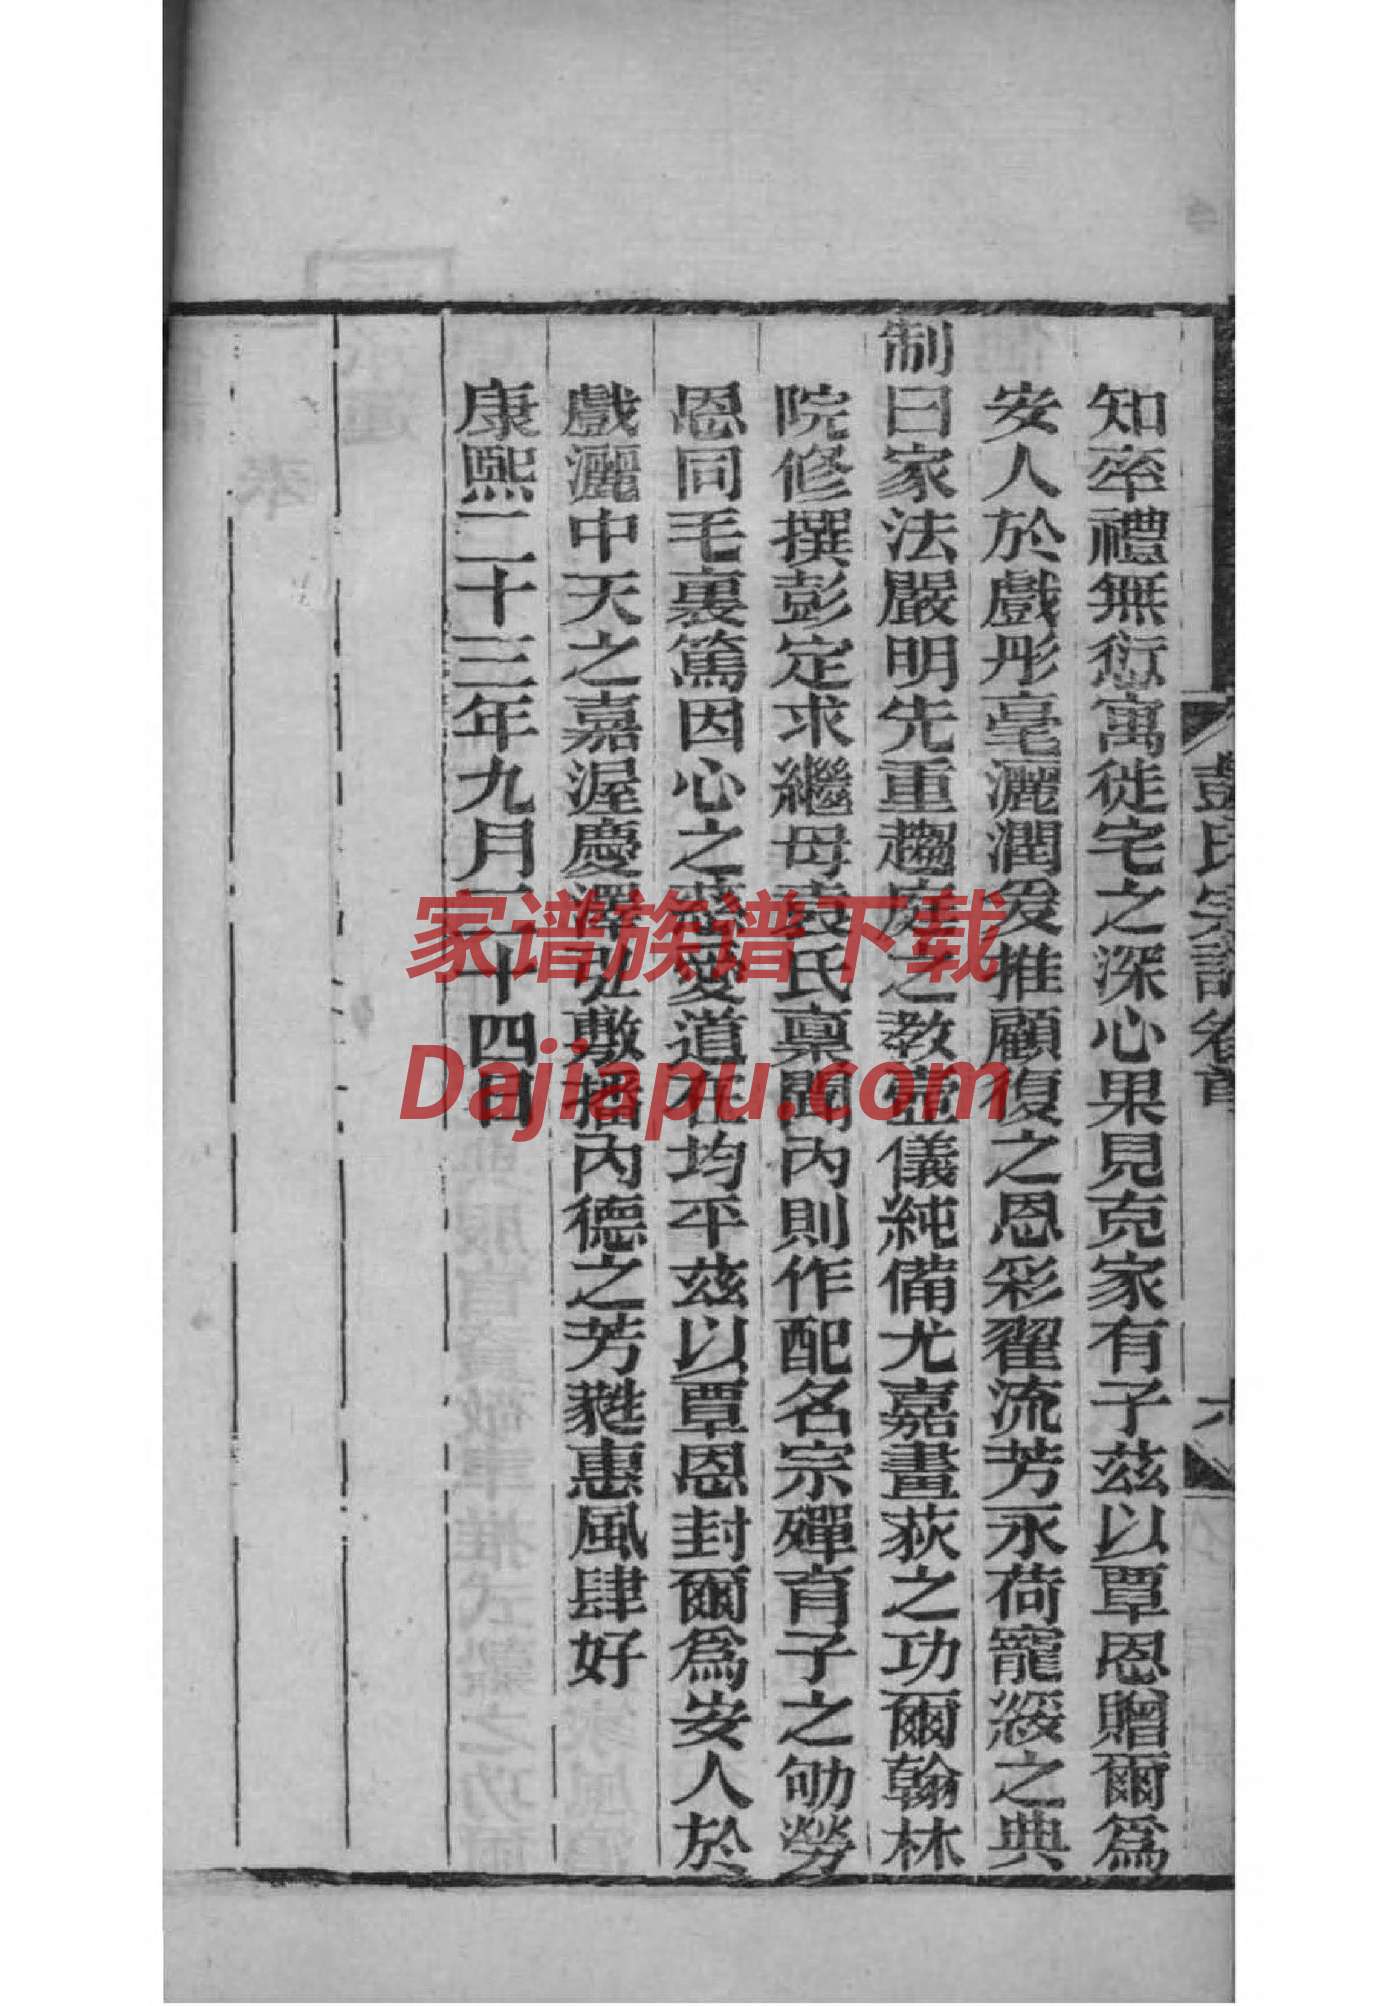 彭氏宗譜卷首
六
知率禮無愆寓徙宅之深心果見克家有子茲以覃恩贈爾爲
安人於戲彤毫灑潤爰推顧復之恩彩翟流芳永荷寵綏之典
制曰家法嚴明先重趨庭之教壼儀純備尤嘉畫荻之功爾翰林
院修撰彭定求繼母袁氏稟閫內則作配名宗殫育子之劬勞
恩同毛裏篤因心之慈愛道在均平茲以覃恩封爾爲安人於
戲灑中天之嘉渥慶澤弘敷播內德之芳蕤惠風肆好
康熙二十三年九月二十四日
家谱族谱下载
Dajiapu.com